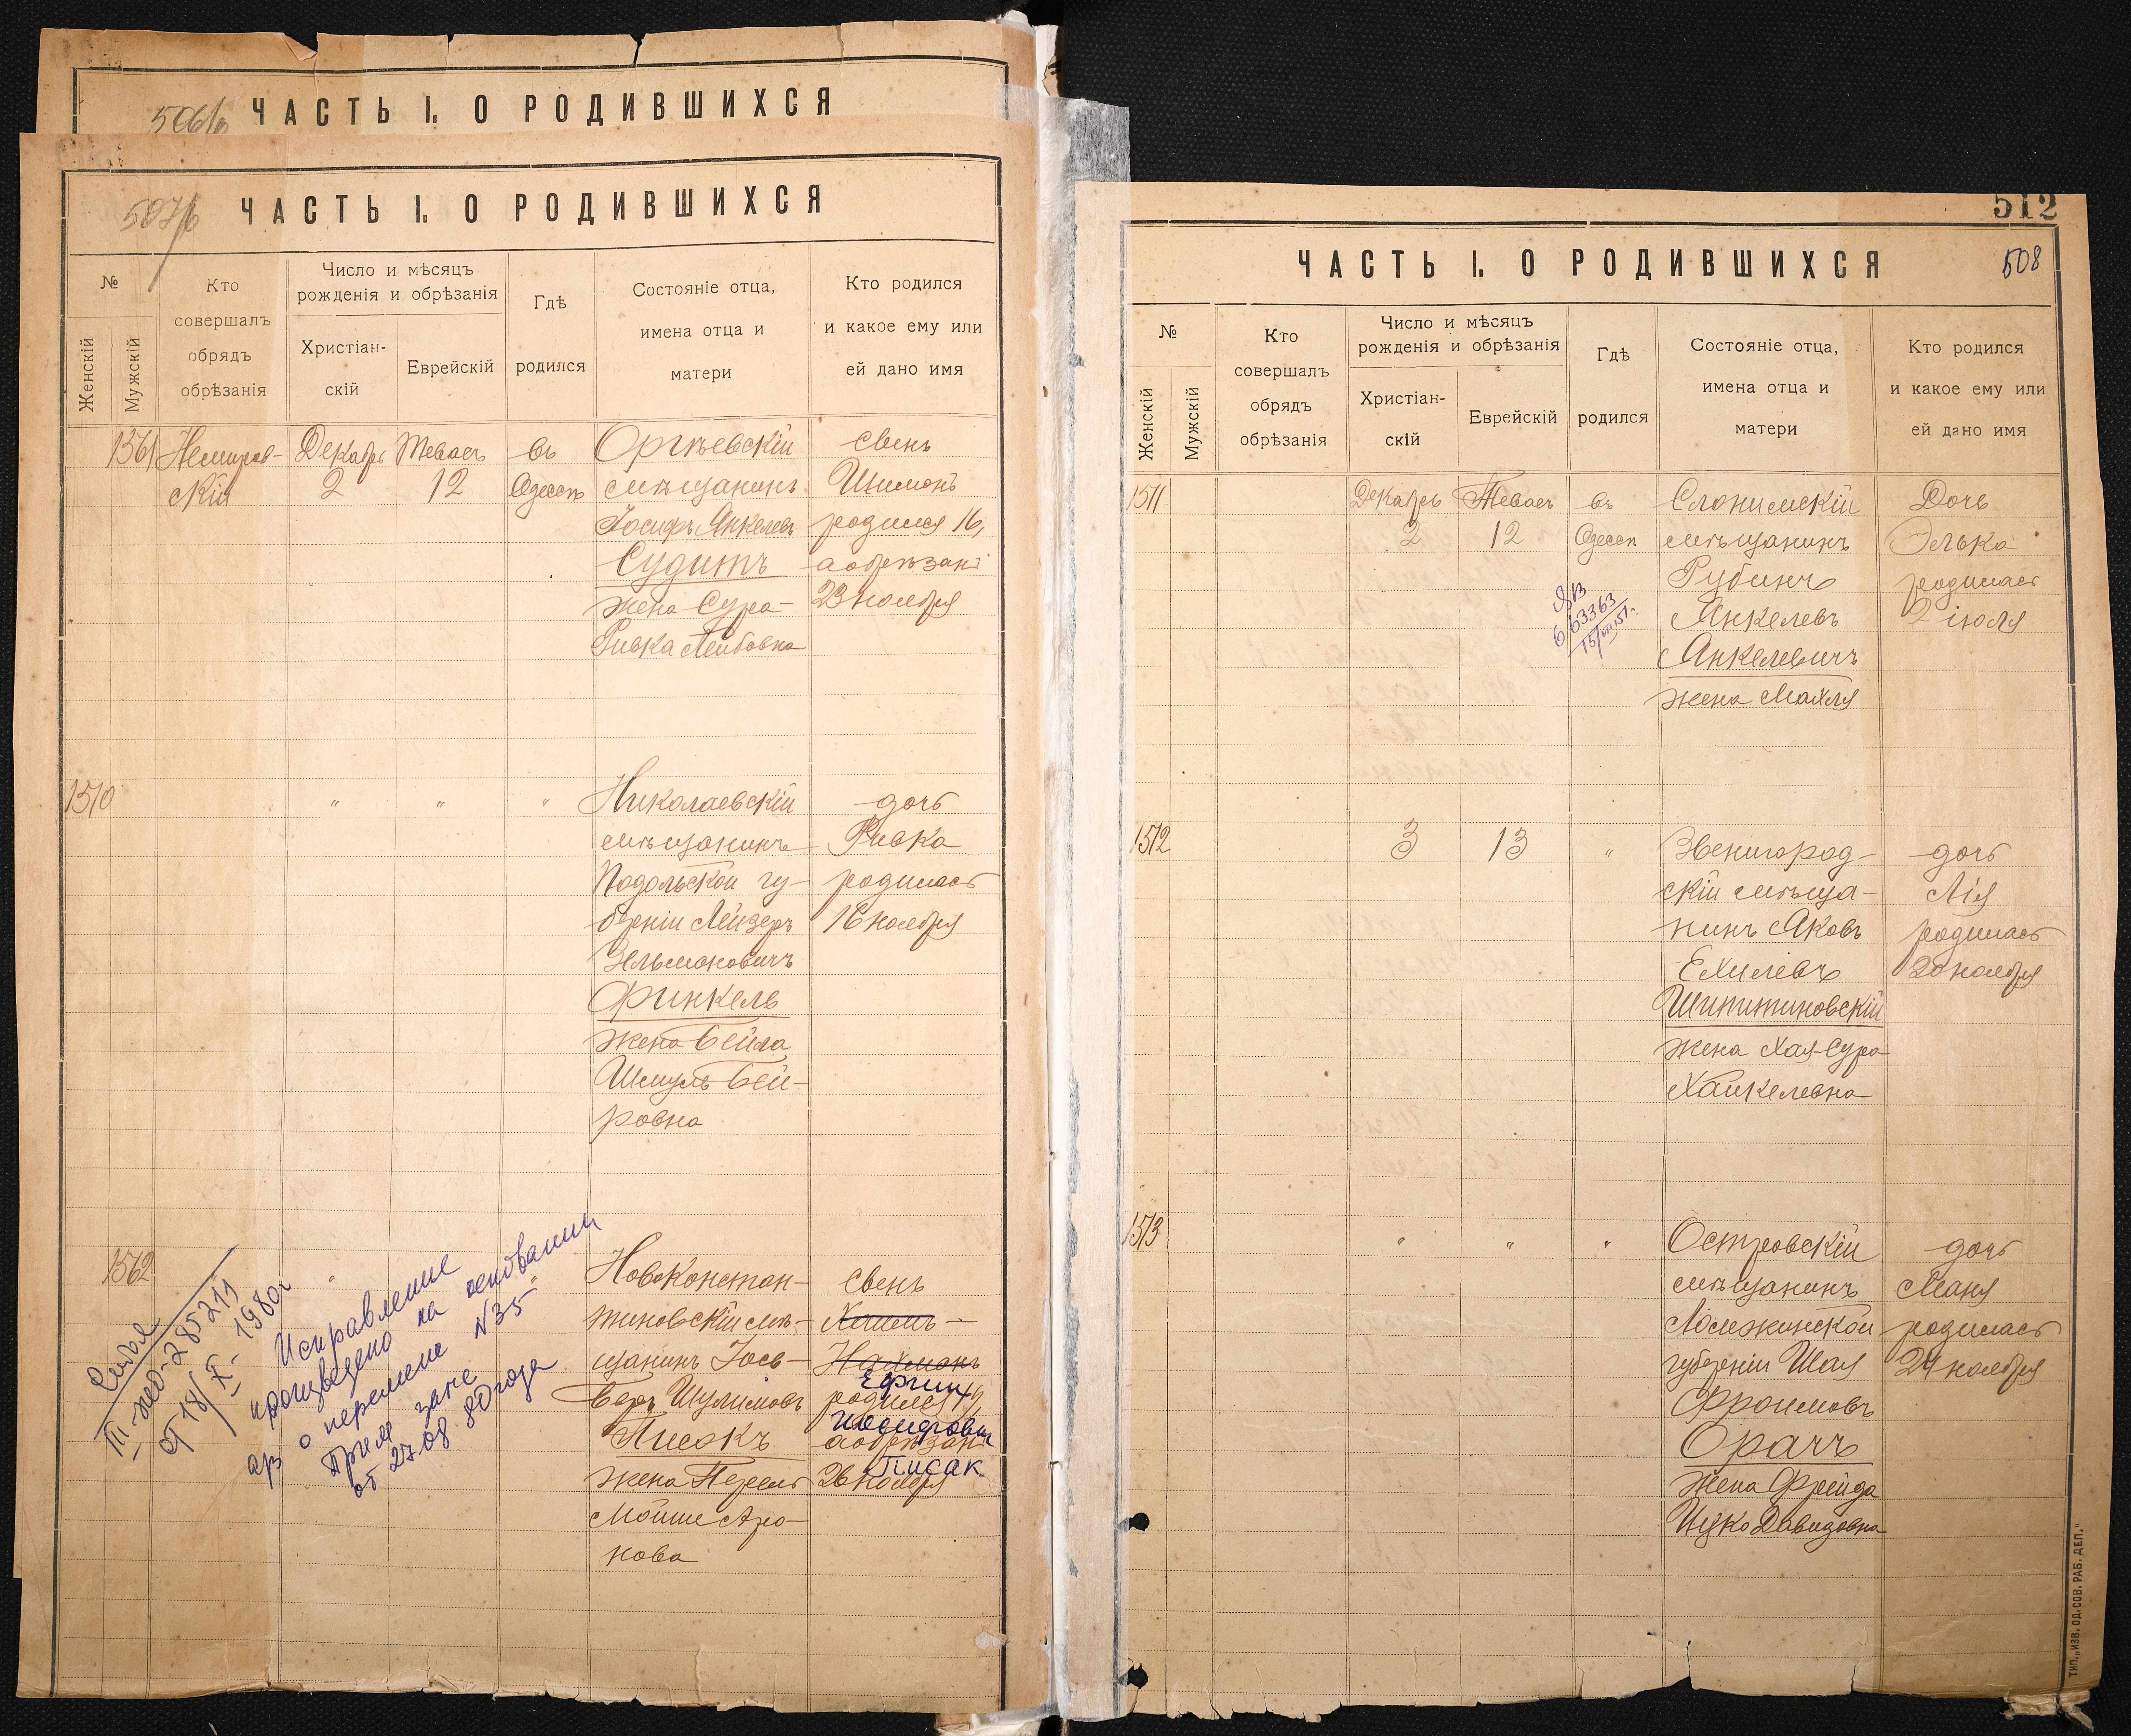 ЧАСТЬ I. О РОДИВШИХСЯ
ЧАСТЬ I. О РОДИВШИХСЯ
№
Женскій
Мужскій
Кто
совершалъ
обрядъ
обрѣзанія
Число и мѣсяцъ
рожденія и обрѣзанія
Христіан-
скій
Еврейскій
Гдѣ
родился
Состояніе отца,
имена отца и
матери
Кто родился
и какое ему или
ей дано имя
1561
Немиров-
скій
Декабрь
2
Теваес
12
въ
Одессѣ
Оргѣевскій
мѣщанинъ
Іосифъ Янкелевъ
Судитъ
жена Сура-
Ривка Лейбовна
сынъ
Шимонъ
родился 16,
а обрѣзанъ
23 ноября
1510
"
"
"
Николаевскій
мѣщанинъ
Подольской гу-
берніи Лейзеръ
Зельмановичъ
Финкель
жена Бейла
Шмуль Бей-
ровна
дочь
Ривка
родилась
16 ноября
1562
Новоконстан-
тиновскій мѣ-
щанинъ Іось-
Беръ Шулимовъ
Писокъ
жена Перель
Мойше Аро-
нова
сынъ
Хаимъ-
Нахманъ
Ефим
родился 19,
Иосифович
а обрѣзанъ
Писак
26 ноября
III-ЖФ-285211
от 18/X-1980г
Исправление
произведено на основании
о перемене №35
от 27.08 80 года
512
508
ЧАСТЬ I. О РОДИВШИХСЯ
№
Женскій
Мужскій
Кто
совершалъ
обрядъ
обрѣзанія
Число и мѣсяцъ
рожденія и обрѣзанія
Христіан-
скій
Еврейскій
Гдѣ
родился
Состояніе отца,
имена отца и
матери
Кто родился
и какое ему или
ей дано имя
1511
Декабрь
2
Теваес
12
въ
Одессѣ
663363
15/VII 51г.
Слонимскій
мѣщанинъ
Рубинъ
Янкелевъ
Янкелевичъ
жена Махля
Дочь
Элька
родилась
2 іюля
1512
3
13
"
Звенигород-
скій мѣща-
нинъ Яковъ
Ехилевъ
Шпитиновскій
жена Хая-Сура
Хайкелевна
дочь
Лія
родилась
20 ноября
1513
"
"
"
Островскій
мѣщанинъ
Ломжинской
губерніи Шая
Фроимовъ
Орачъ
жена Фрейда
Цико Давидовна
дочь
Маня
родилась
24 ноября
ТИП. „ИЗВ. ОД. СОВ. РАБ. ДЕП."